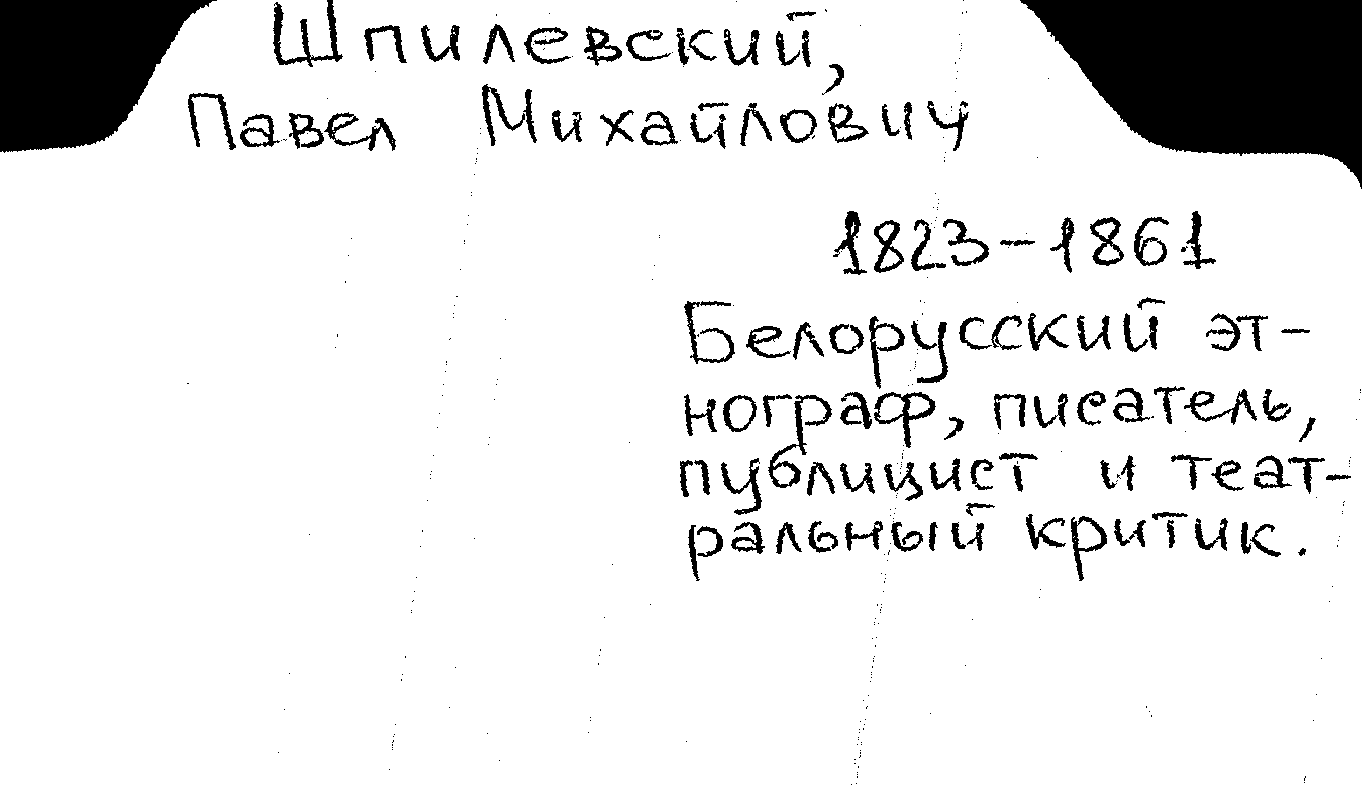 Шпилевский,
Павел Михайлович
1823-1861
Белорусский эт-
нограф, писатель,
публицист и теат-
ральный критик.